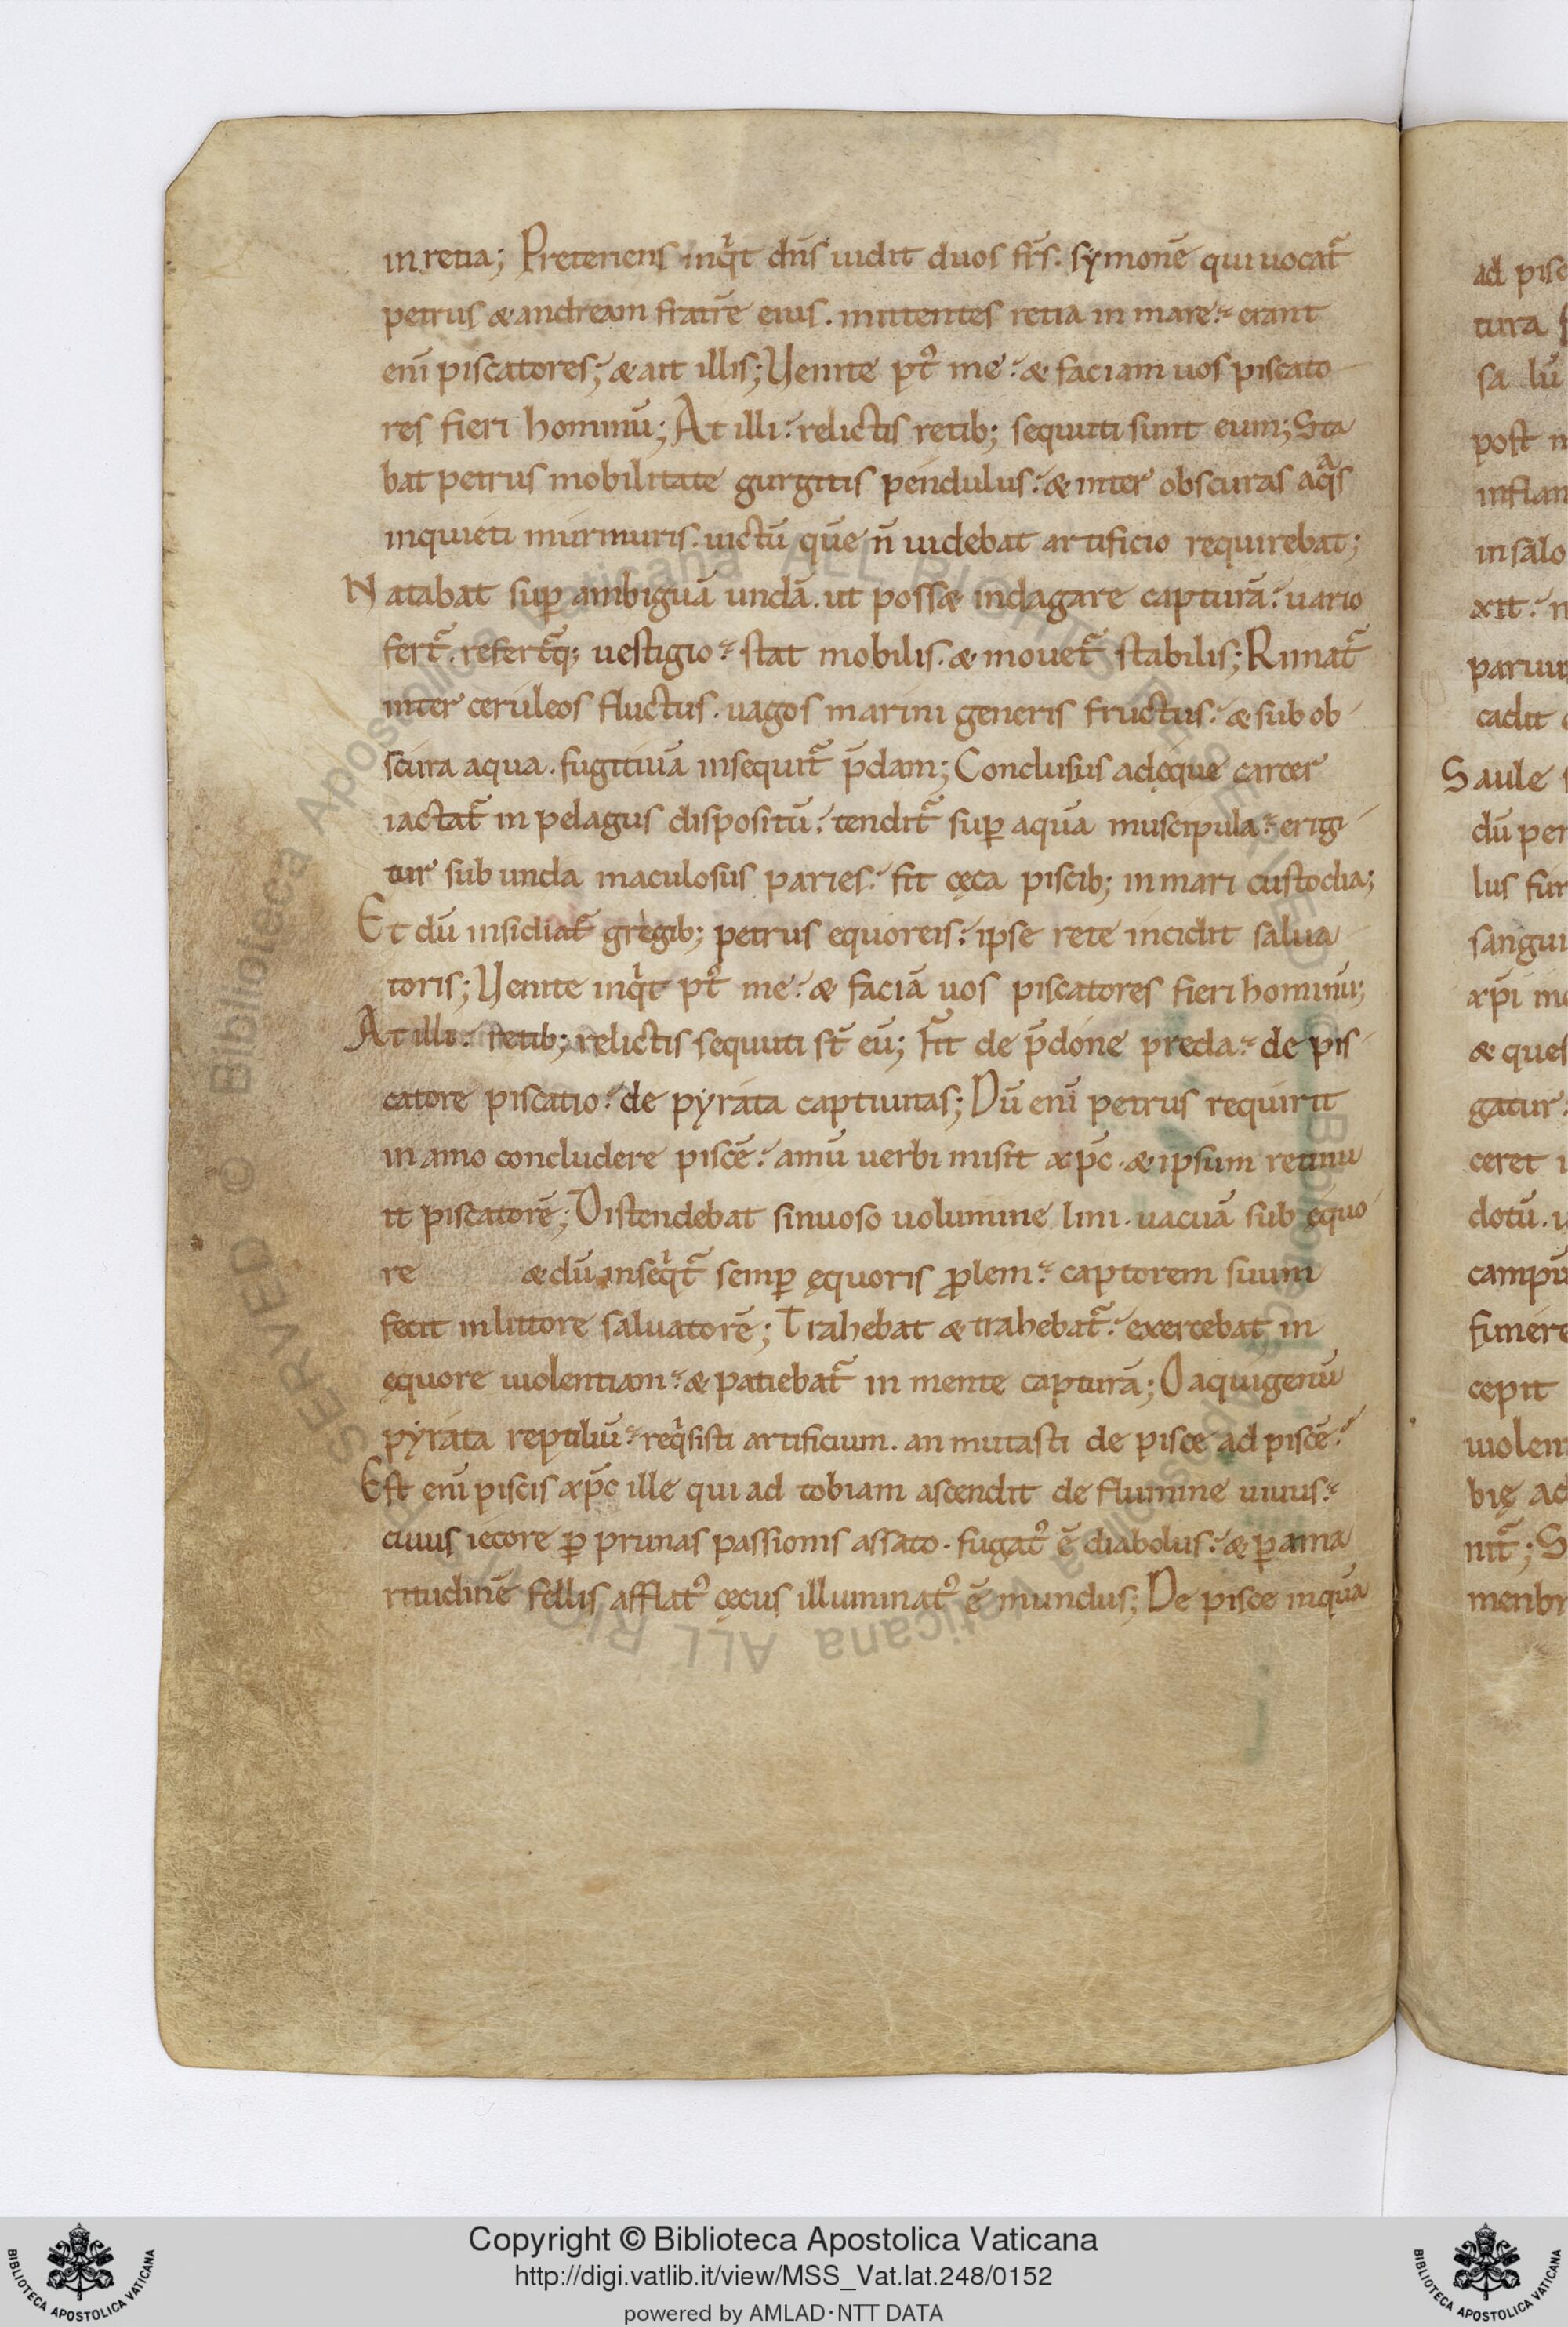 in retia; Preteriens inq̇t dn̄s uidit duos fr̄s. symonē qui uocat᷒
petrus & andream fratrē eius. mittentes retia in mare. erant
eni̅ piscatores; & ait illis; Uenite pt̛ me. & faciam uos piscato
res fieri hominū; At illi. relictis retib; sequuti sunt eum; Sta
bat petrus mobilitate gurgitis pendulus. & inter obscuras aqͣs
inquieti murmuris. uictū quē n̄ uidebat artificio requirebat;
Natabat suꝑ ambiguā undā. ut poss& indagare capturā. uario
fert᷒. refert᷒q; uestigio. stat mobilis. & mouet᷒ stabilis; Rimat᷒
inter ceruleos fluctus. uagos marini generis fructus. & sub ob
scura aqua. fugitiuā insequit᷒ p̄dam; Conclusus adęque carcer
iactat᷒ in pelagus dispositū. tendit᷒ suꝑ aquā muscipula. erigi
tur sub unda maculosus paries. fit cęca piscib; in mari custodia;
Et dū insidiat᷒ gregib; petrus equoreis. ipse rete incidit salua
toris; Uenite inq̇t pt̛ me. & faciā uos piscatores fieri hominū;
At illi. retib; relictis sequuti st̄ eū; Fit de p̄done preda. de pis
catore piscatio. de pyrata captiuitas; Dū eni̅ petrus requirit
in amo concludere piscē. amū uerbi misit xp̄c. & ipsum retinu
it piscatorē; Distendebat sinuoso uolumine lini. uacuā sub ęquo
re & dū inseq̇t᷒ semꝑ ęquoris ꝓlem. captorem suum
fecit in littore saluatorē; Trahebat & trahebat᷒. exercebat in
ęquore uiolentiam. & patiebat᷒ in mente capturā; O aquigenū
pyrata reptiliū. req̇sisti artificium. an mutasti de pisce ad piscē.
Est eni̅ piscis xp̄c ille qui ad tobiam ascendit de flumine uiuus.
cuius iecore ꝑ prunas passionis assato. fugat̛ ē diabolus. & ꝑ ama
ritudinē fellis afflat̛ cęcus illuminat̛ ē mundus; De pisce inquā
ad pisc
tura
sa lū
post
inflam
in salo
xit.
paruu
cadit
Saule
dū per
lus fur
sangui
xp̄i
& ques
gatur
ceret
dotū.
campū
funere
cepit
uiolen
bię ad
nit᷒; S
menbr
Biblioteca Apostolica Vaticana ALL RIGHTS RESERVED ©
Copyright © Biblioteca Apostolica Vaticana
http://digi.vatlib.it/view/MSS_Vat.lat.248/0152
powered by AMLAD·NTT DATA
BIBLIOTECA APOSTOLICA VATICANA
BIBLIOTECA APOSTOLICA VATICANA